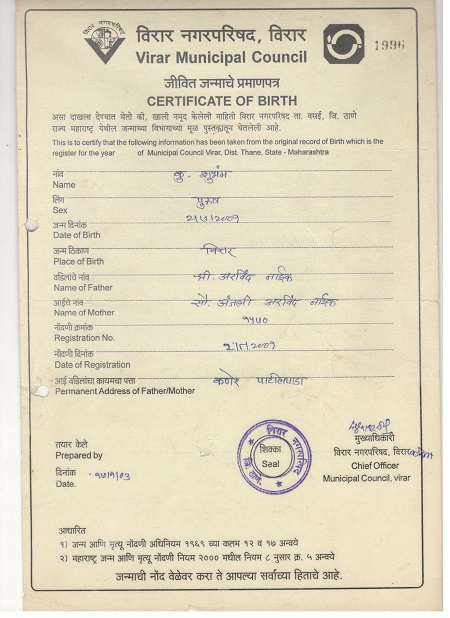 विरार नगरपरिषद, विरार
Virar Municipal Council
1996
जीवित जन्माचे प्रमाणपत्र
CERTIFICATE OF BIRTH
असा दाखला देण्यात येतो की, खाली नमूद केलेली माहिती विरार नगरपरिषद ता. वसई, जि. ठाणे
राज्य महाराष्ट्र येथील जन्माच्या विभागाच्या मूळ पुस्तकातून घेतलेली आहे.
This is to certify that the following information has been taken from the original record of Birth which is the
register for the year of Municipal Council Virar, Dist. Thane, State - Maharashtra
नांव
Name कु. शुभंम
लिंग
Sex पुरुष
जन्म दिनांक
Date of Birth
जन्म ठिकाण
Place of Birth विरार
वडिलांचे नांव
Name of Father श्री. अरविंद नाईक
आईचे नांव
Name of Mother सौ. अंजली अरविंद नाईक
नोंदणी क्रमांक
Registration No.
नोंदणी दिनांक
Date of Registration
आई वडिलांचा कायमचा पत्ता
Permanent Address of Father/Mother कणेर पाटीलपाडा
तयार केले
Prepared by
दिनांक
Date.
विरार नगरपरिषद
जि. ठाणे.
शिक्का
Seal
मुख्याधिकारी
विरार नगरपरिषद, विरार
Chief Officer
Municipal Council, virar
आधारित
१) जन्म आणि मृत्यू नोंदणी अधिनियम १९६९ च्या कलम १२ व १७ अन्वये
२) महाराष्ट्र जन्म आणि मृत्यू नोंदणी नियम २००० मधील नियम ८ नुसार क्र. ५ अन्वये
जन्माची नोंद वेळेवर करा ते आपल्या सर्वाच्या हिताचे आहे.